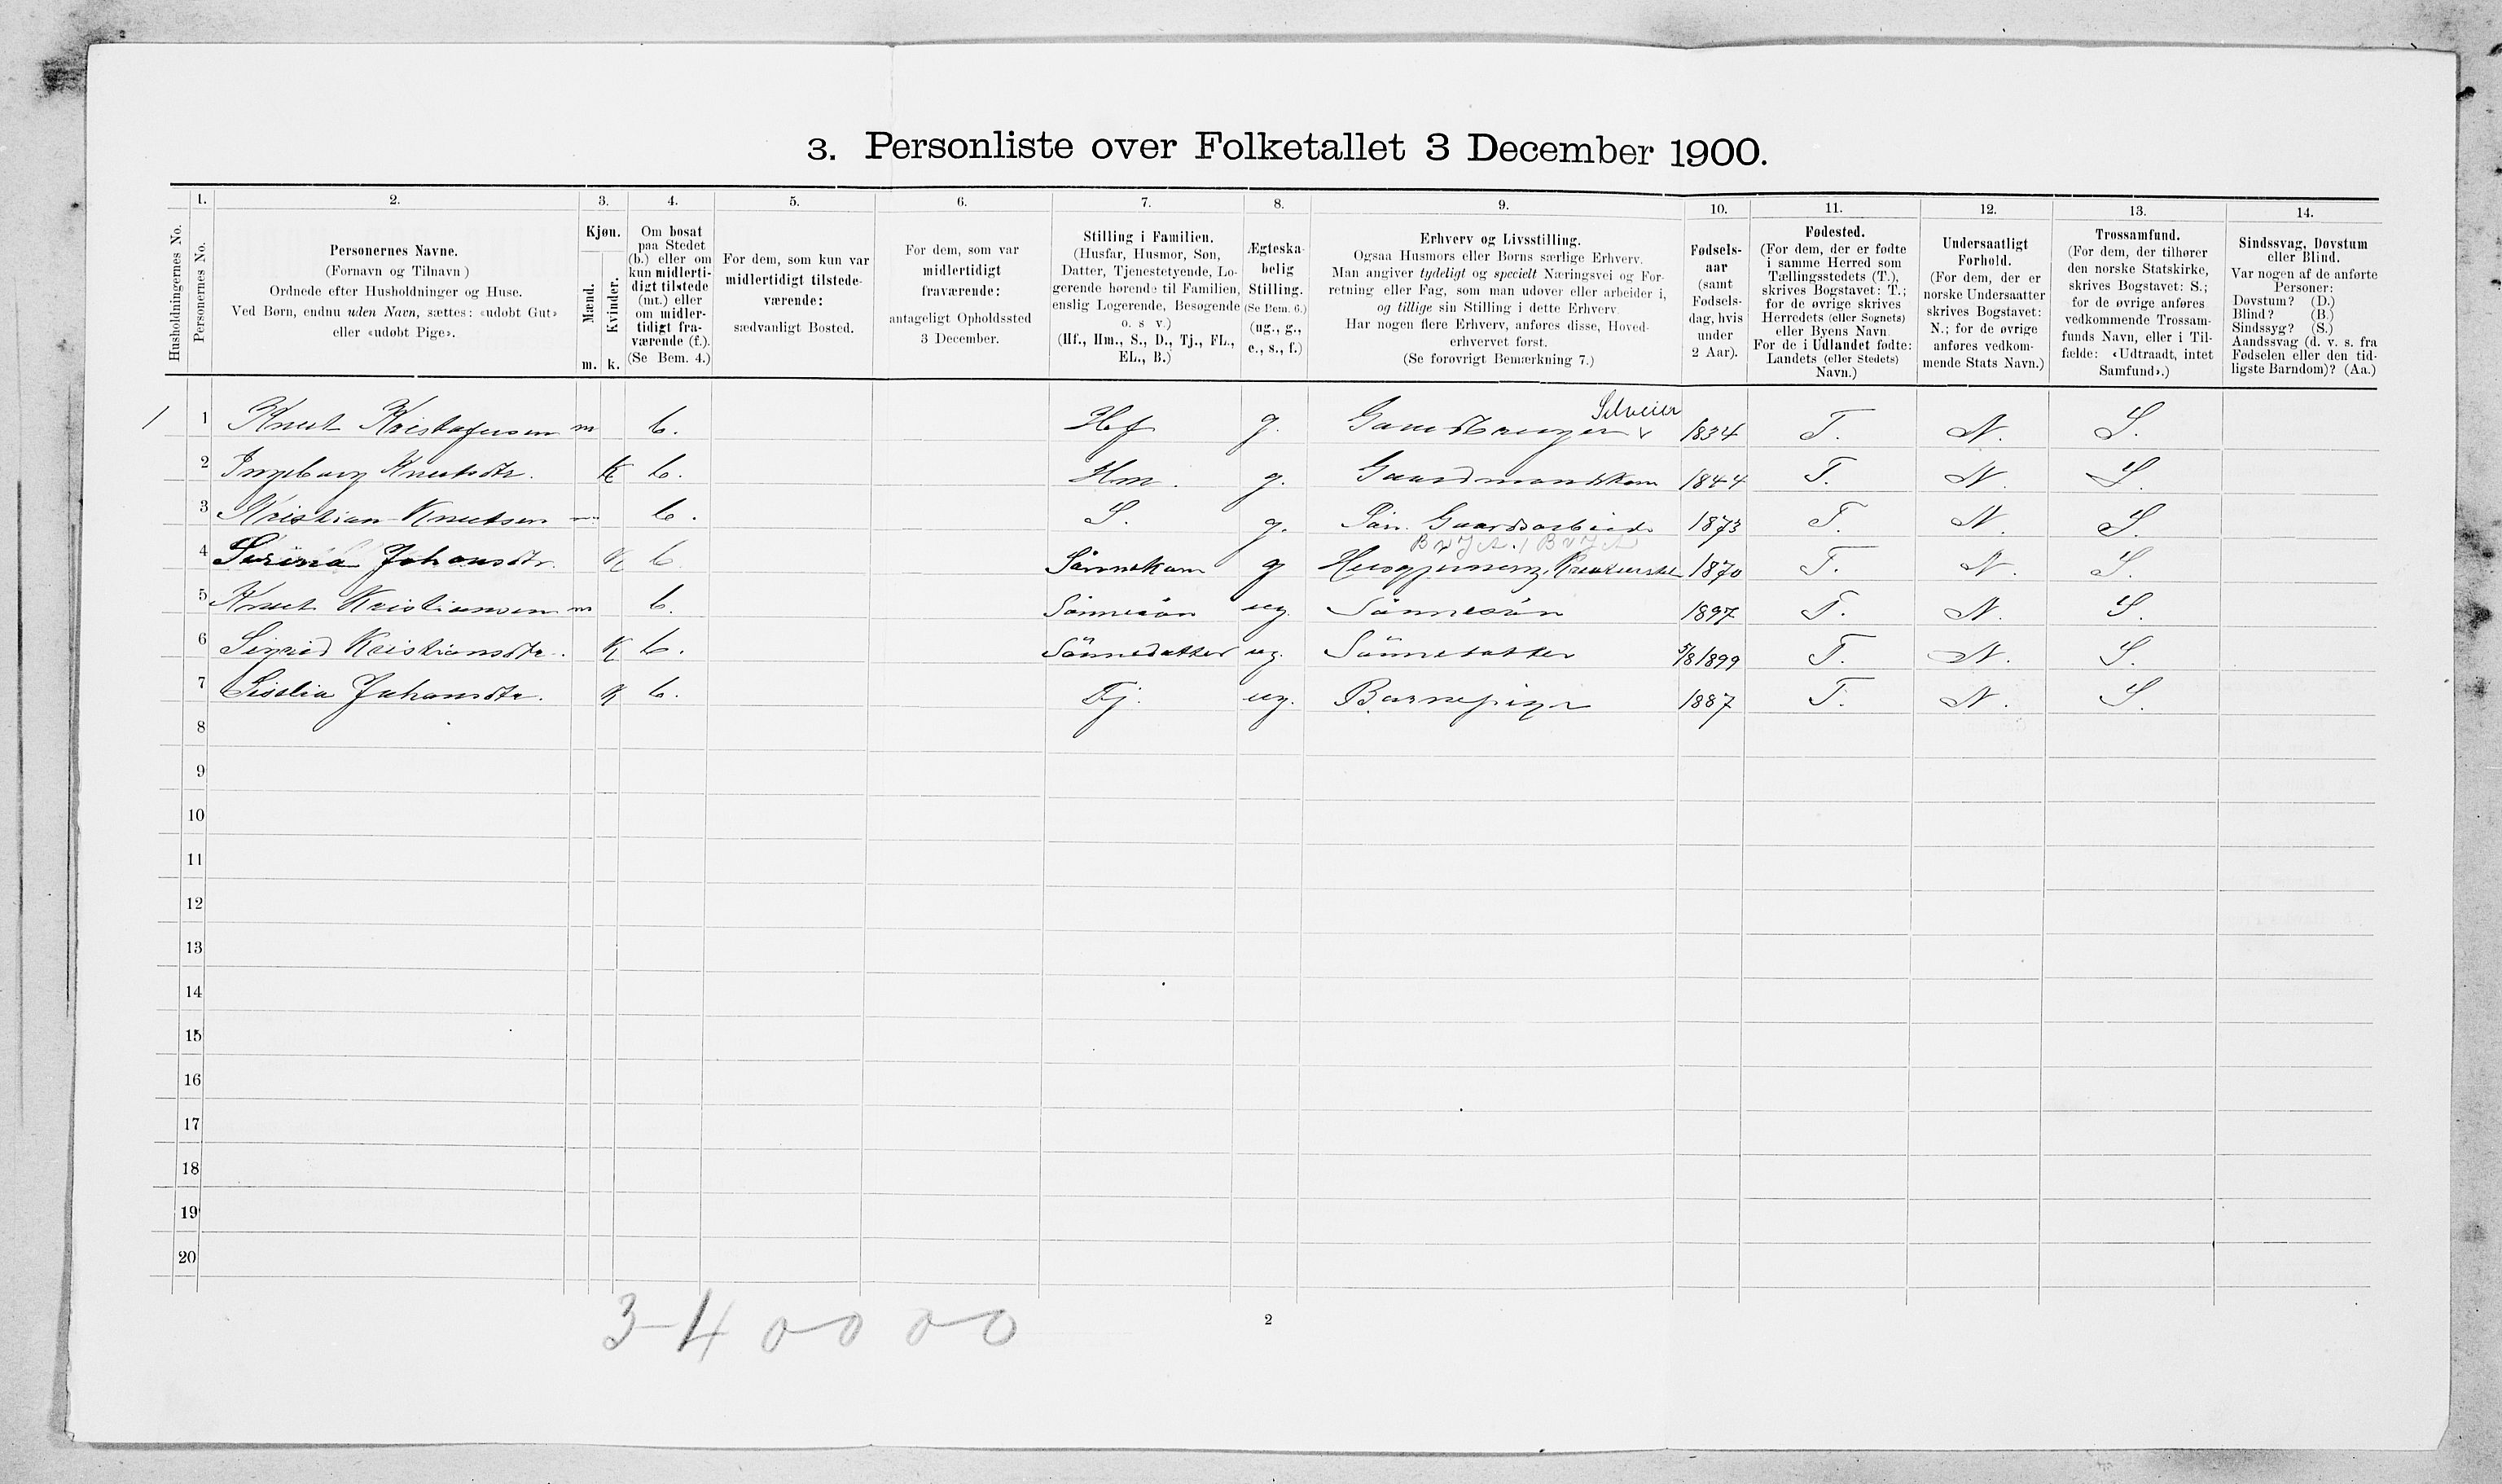 3. Personliste over Folketallet 3 December 1900.
Husholdningernes No.
1.
Personernes No.
2.
Personernes Navne.
(Fornavn og Tilnavn)
Ordnede efter Husholdninger og Huse.
Ved Børn, endnu uden Navn, sættes: «udøbt Gut»
eller «udøbt Pige».
3.
Kjøn.
Mænd.
Kvinder.
m. k.
4.
Om bosat
paa Stedet
(b.) eller om
kun midlerti-
digt tilstede
(mt.) eller
om midler-
tidigt fra-
værende (f.).
(Se Bem. 4.)
5.
For dem, som kun var
midlertidigt tilstede-
værende:
sædvanligt Bosted.
6.
For dem, som var
midlertidigt
fraværende:
antageligt Opholdssted
3 December.
7.
Stilling i Familien.
(Husfar, Husmor, Søn,
Datter, Tjenestetyende, Lo-
gerende hørende til Familien,
enslig Logerende, Besøgende
o. s v.)
(Hf., Hm., S., D., Tj., FL.,
EL., B.)
8.
Ægteska-
belig
Stilling.
(Se Bem. 6.)
(ug., g.,
e., s., f.)
9.
Erhverv og Livsstilling.
Ogsaa Husmors eller Børns særlige Erhverv.
Man angiver tydeligt og specielt Næringsvei og For-
retning eller Fag, som man udøver eller arbeider i,
og tillige sin Stilling i dette Erhverv.
Har nogen flere Erhverv, anføres disse, Hoved-
erhvervet først.
(Se forøvrigt Bemærkning 7.)
10.
Fødsels-
aar
(samt
Fødsels-
dag, hvis
under
2 Aar).
11.
Fødested.
(For dem, der er fødte
i samme Herred som
Tællingsstedets (T.),
skrives Bogstavet: T.;
for de øvrige skrives
Herredets (eller Sognets)
eller Byens Navn.
For de i Udlandet fødte:
Landets (eller Stedets)
Navn.)
12.
Undersaatligt
Forhold.
(For dem, der er
norske Undersaatter
skrives Bogstavet:
N.; for de øvrige
anføres vedkom-
mende Stats Navn.)
13.
Trossamfund.
(For dem, der tilhører
den norske Statskirke,
skrives Bogstavet: S.;
for de øvrige anføres
vedkommende Trossam-
funds Navn, eller i Til-
fælde: «Udtraadt, intet
Samfund».)
14.
Sindssvag, Døvstum
eller Blind.
Var nogen af de anførte
Personer:
Døvstum? (D.)
Blind? (B.)
Sindssyg? (S.)
Aandssvag (d. v. s. fra
Fødselen eller den tid-
ligste Barndom)? (Aa.)
Selveier
1 1 Knut Kristofersen m b. Hf g. Gaardbruger 1834 T. N. S.
2 Ingeborg Knutsdtr. K b. Hm. g. Gaardmandskone 1844 T. N. S.
3 Kristian Knutsen m b. S. g. Gaardsarbeide 1873 T. N. S.
4 Serina Johansdtr. K b Sønnekone g Husgjerning, Kreaturstel 1870 T. N. S.
5 Knut Kristiansen m b. Sønnesøn ug. Sønnesøn 1897 T. N. S.
6 Sigrid Kristiansdtr. K b. Sønnedatter ug. Sønnedatter 5/8 1899 T. N. S.
7 Siselia Johansdtr. K b. Tj. ug. Barnepige 1887 T. N. S.
8
9
10
11
12
13
14
15
16
17
18
19
20
3-4 00 00
2